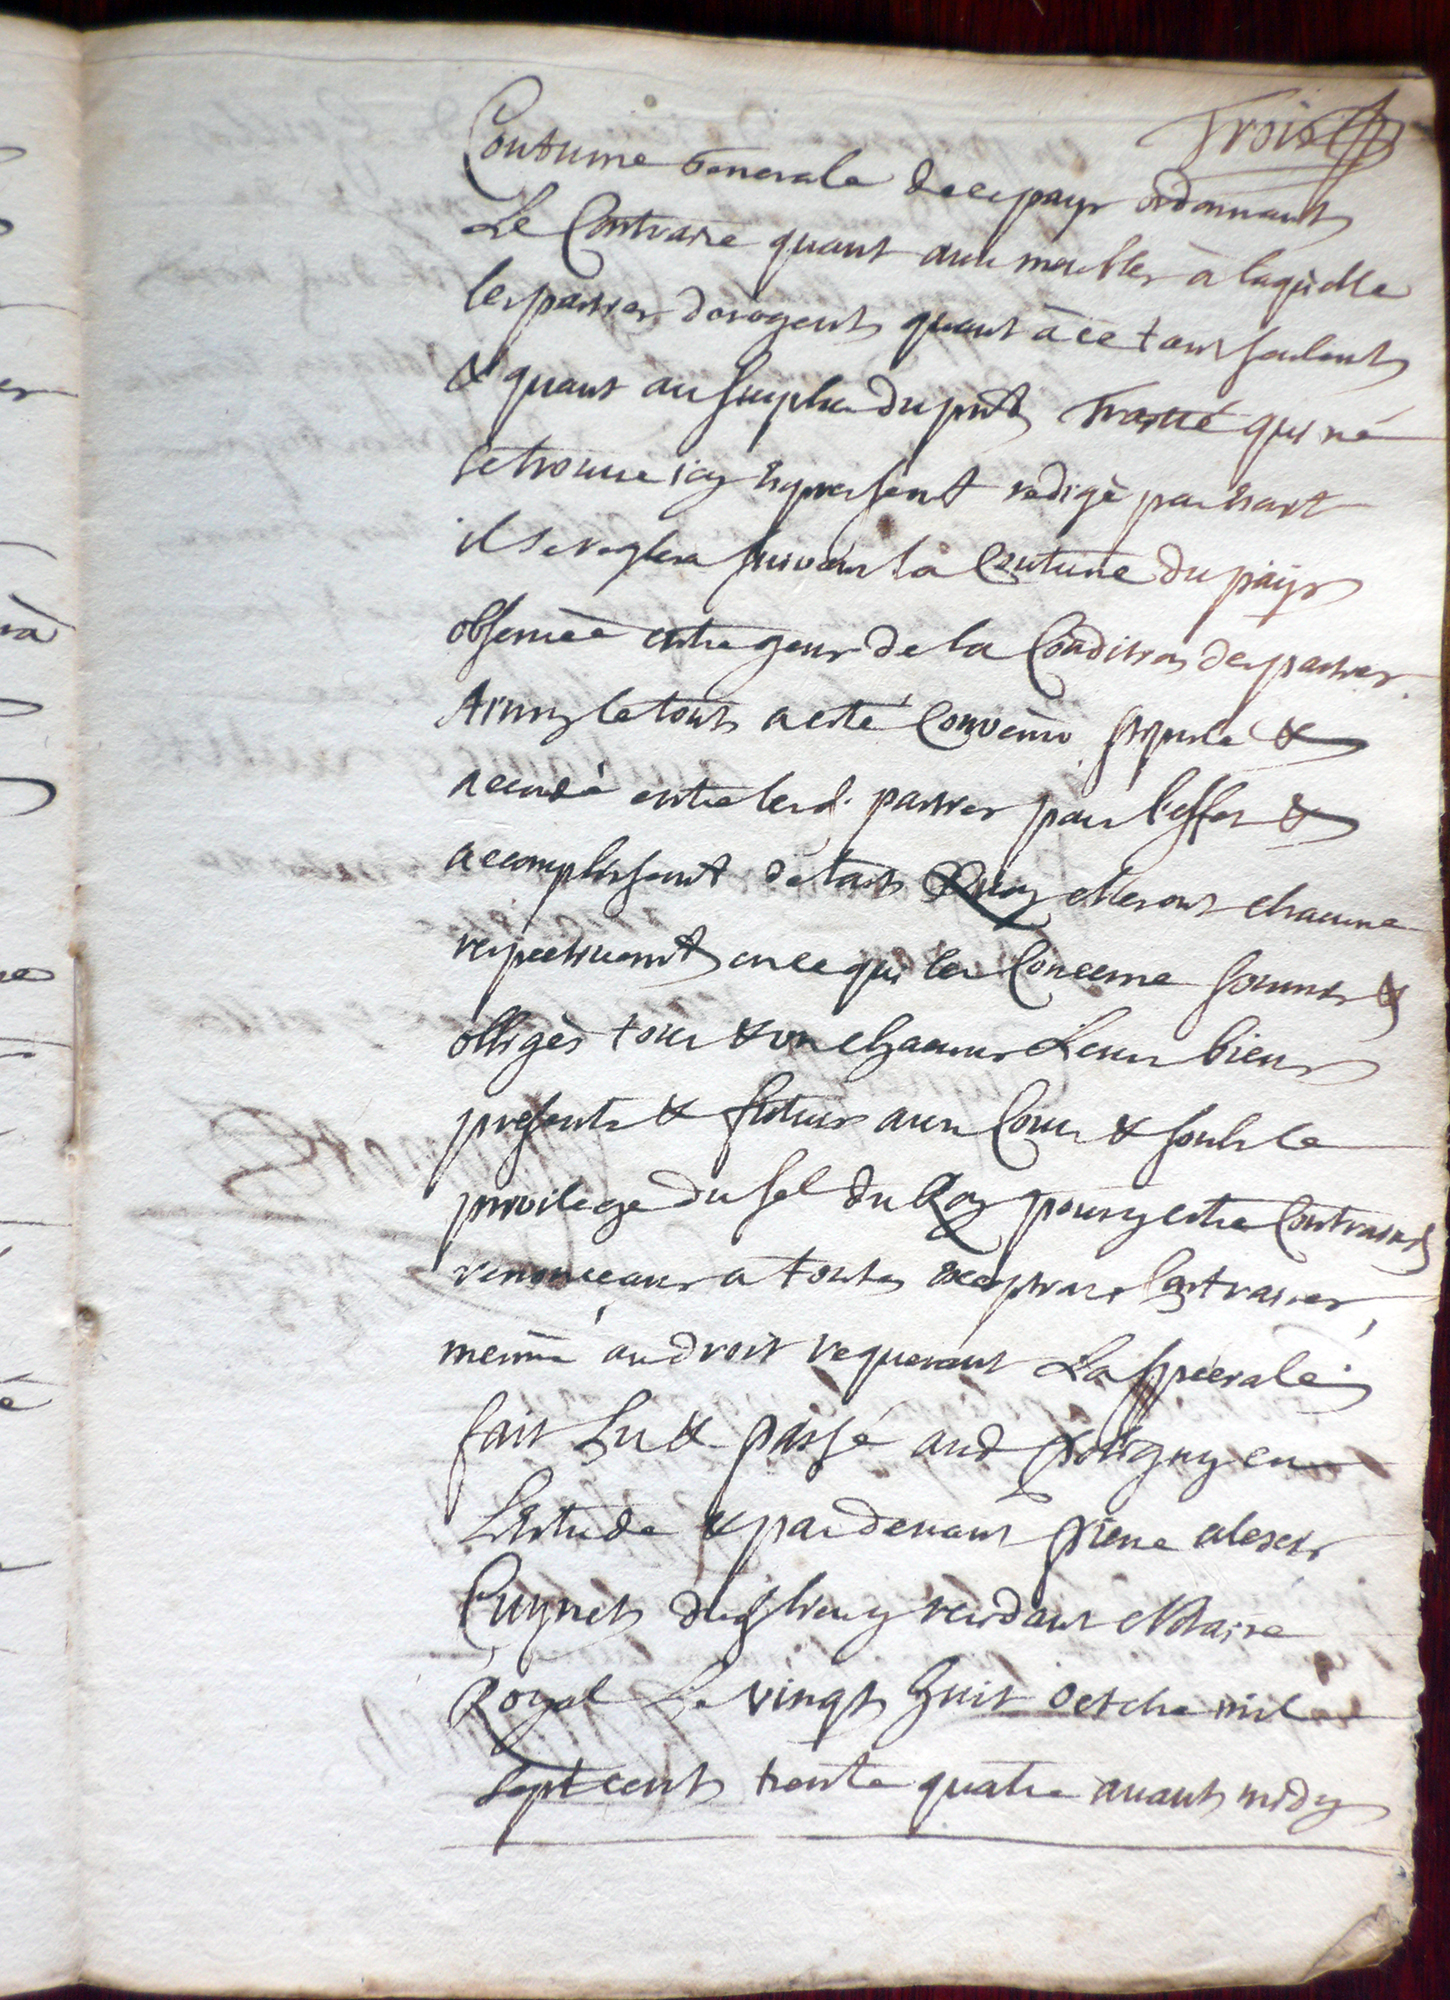 Trois
Coutume Generale de ce pays ordonnant
Le Contraire quant aux meubles à laquelle
les parties derogent quant à ce tant seulent
& quant au surplus du pnt Traitté qui ne
se trouve icy expressemt redigé par escrit
il se reglera suivant la Coutume du pays
observée entre gens de la Condition des parties
Ainsy le tout a esté Convenu stipulé &
accordé entre lesd. parties pour l'effet &
accomplissemt de tout Quoy elles ont chacune
respectivemt en ce qui les Concerne soumis &
obligés tous & un chacuns Leurs biens
presents & futurs aux Cours & soubs le
privilege du sel du Roy pour y estre Contraints
renonceans a toutes exceptions Contraires
meme au droit requerant La speciale
fait Lu & passé aud Poligny en
L'Estude & pardevant Pierre alexis
Cuynet dud lieu y residant Notaire
Royal Le vingt huit octobre mil
sept cent trente quatre avant midy